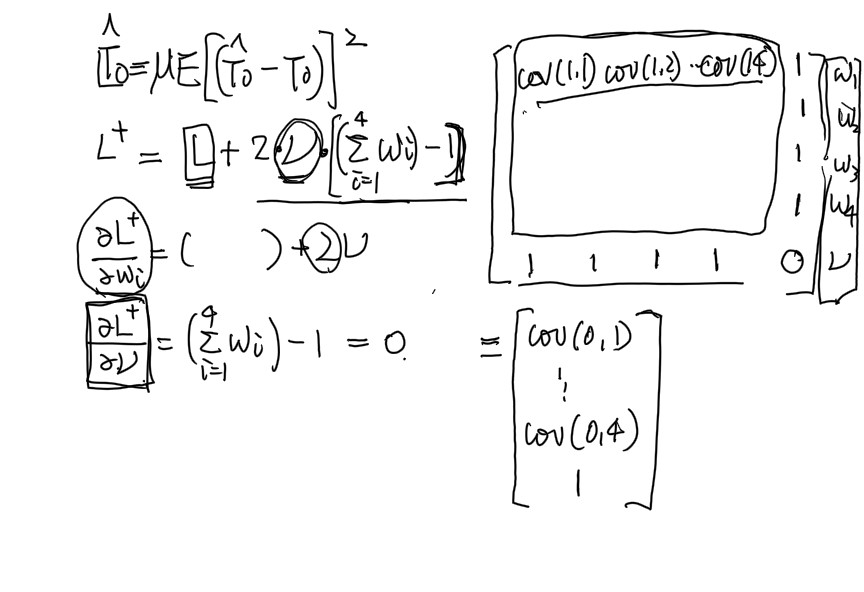 T̂₀ = μE[(T̂₀ − T₀)]²
L⁺ = L + 2ν·[(Σᵢ₌₁⁴ wᵢ) − 1]
∂L⁺/∂wᵢ = ( ) + 2ν
∂L⁺/∂ν = (Σᵢ₌₁⁴ wᵢ) − 1 = 0
cov(1,1) cov(1,2) ·· cov(1,4) 1 w₁
1 w₂
1 w₃
1 w₄
1 1 1 1 0 ν
= cov(0,1)
⋮
cov(0,4)
1